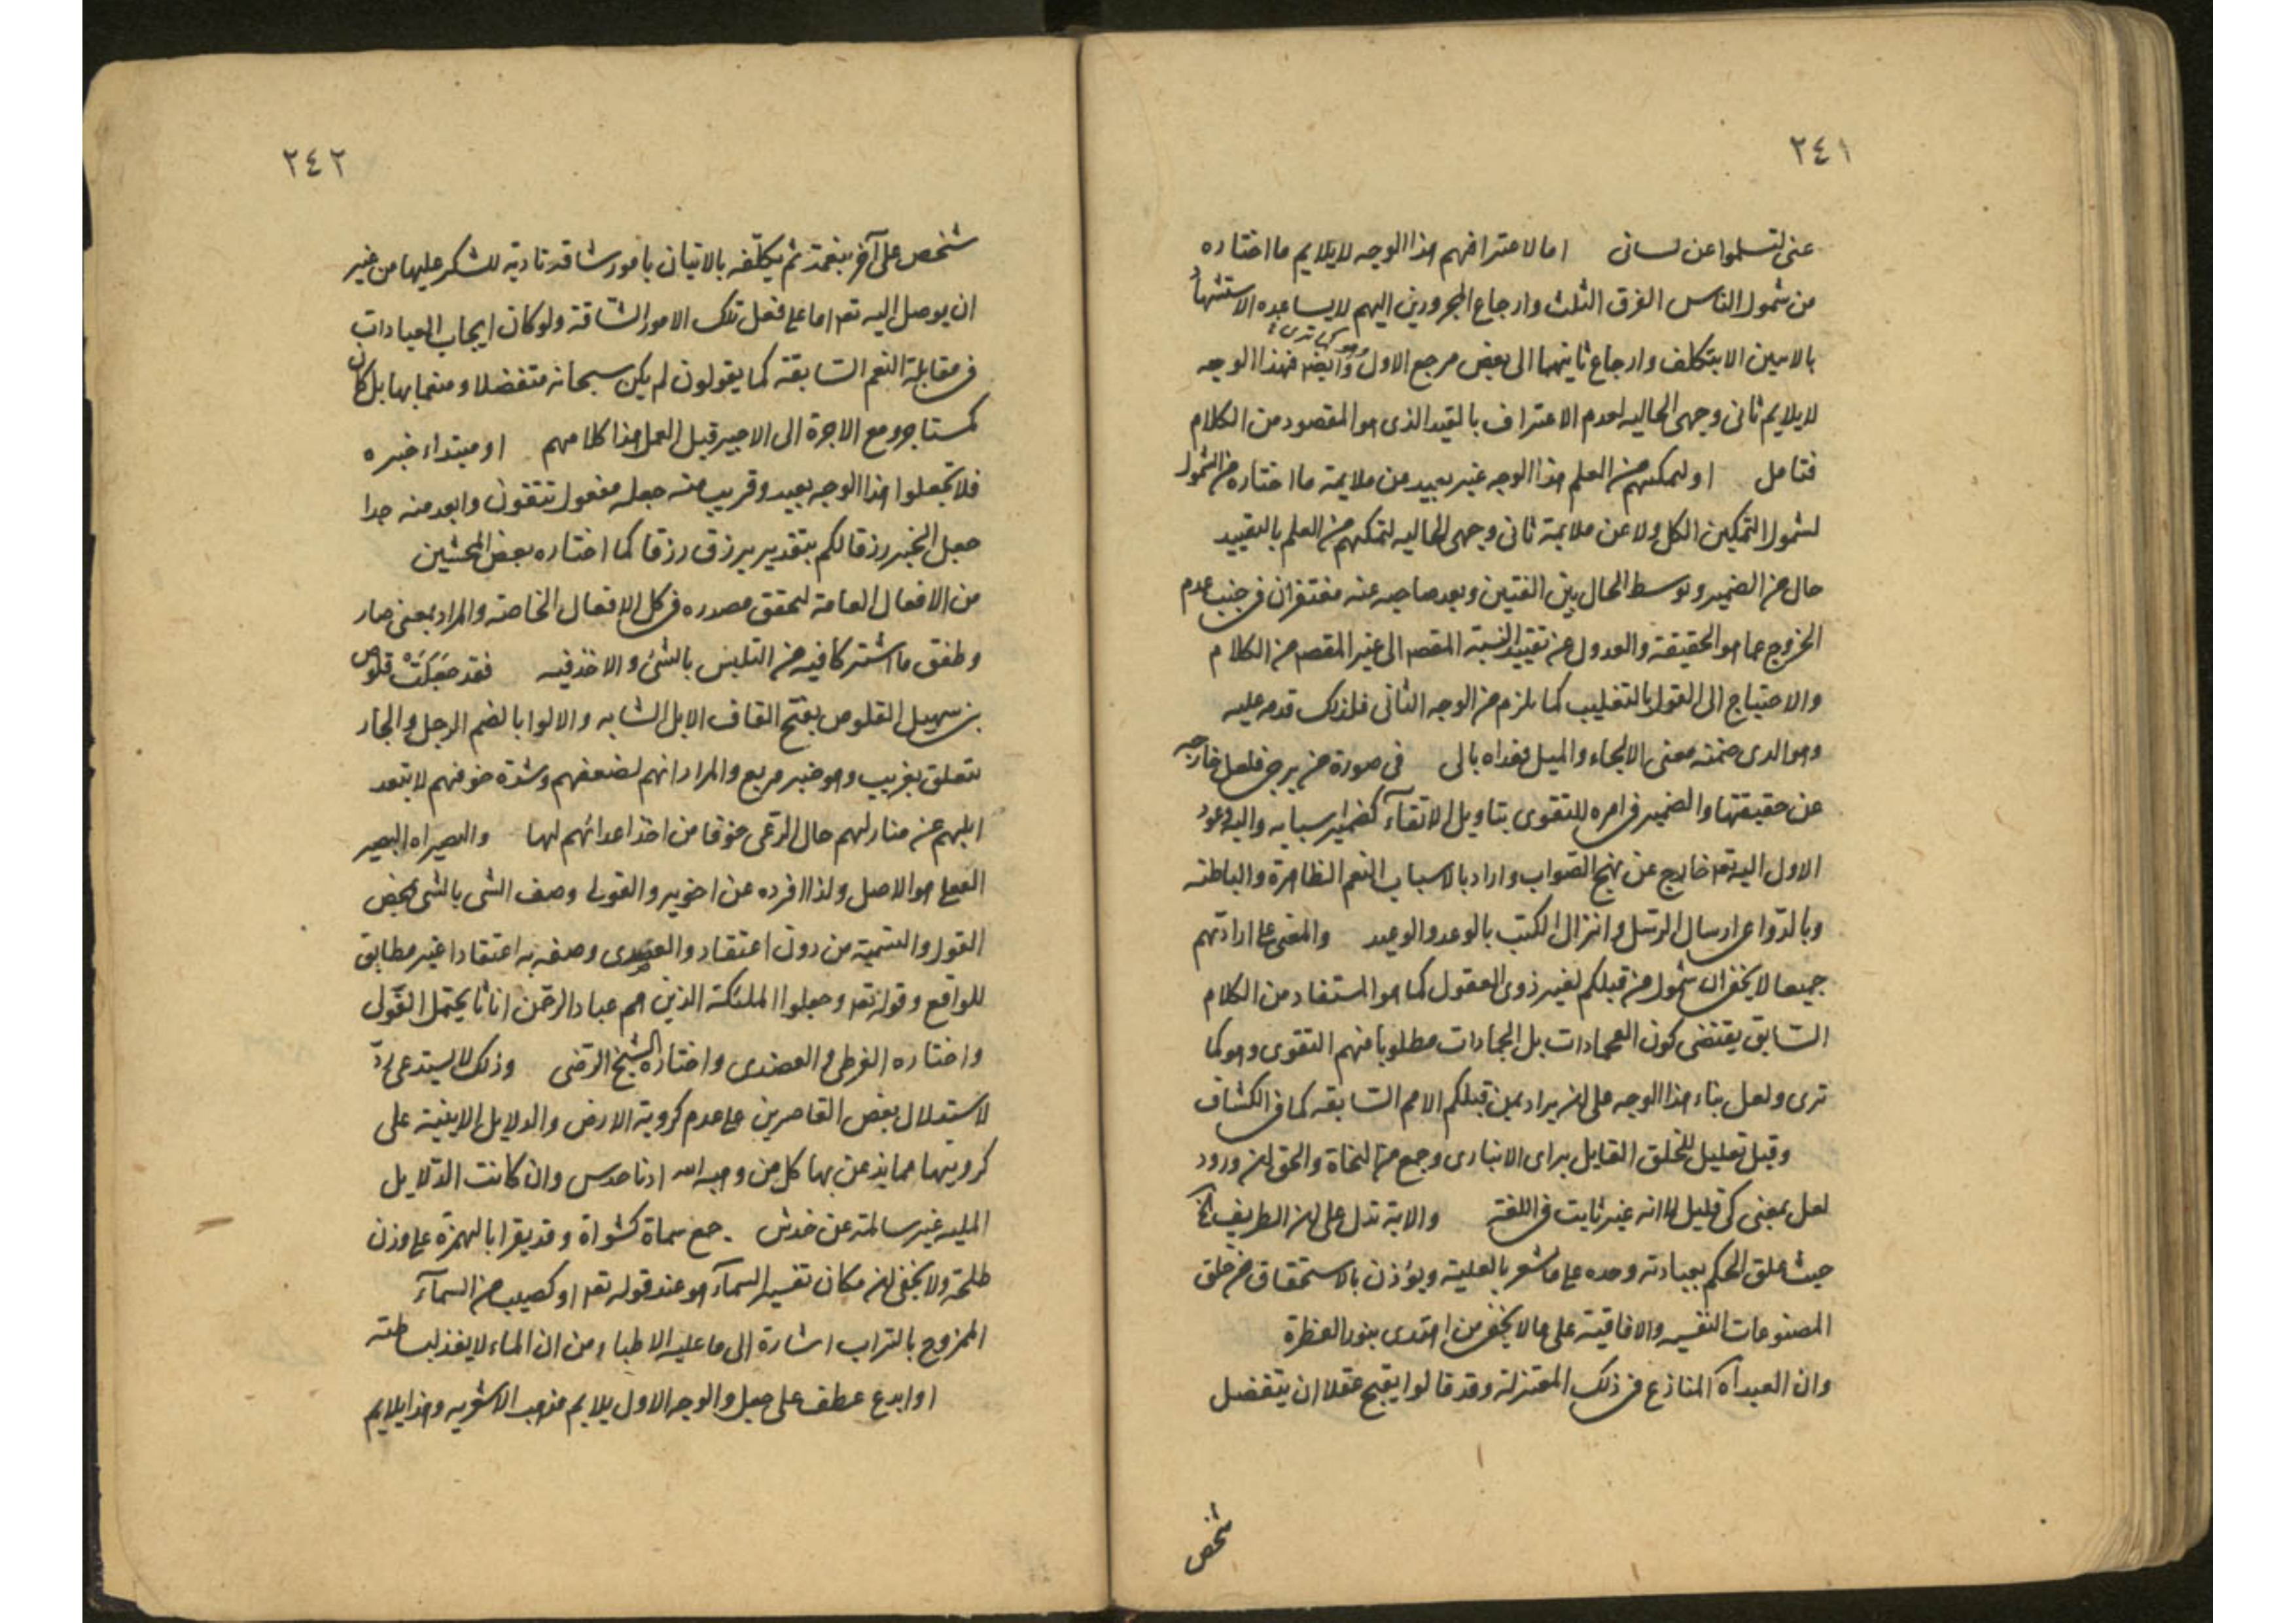 ٢٤١
عنى لتسلموا عن لسانى اما لاعترافهم هذا الوجه لا يلايم ما اختاره
من شمول الناس الفرق الثلث وارجاع المجرورين اليهم لا يساعده الاستشهاد
بالايتين الا بتكلف وارجاع ثانيهما الى بعض مرجع الاول وهو كما ترى وايضا فهذا الوجه
لا يلايم ثانى وجهى الحاليه لعدم الاعتراف بالقيد الذى هو المقصود من الكلام
فتامل او لتمكنهم من العلم هذا الوجه غير بعيد من ملايمة ما اختاره من الشمول
لشمول التمكين الكل ولا عن ملايمة ثانى وجهى الحاليه لتمكنهم من العلم بالتقييد
حال من الضمير وتوسط الحال بين الفتين وبعد صاحبه عنه مفتقران فى جنب عدم
الخروج عما هو الحقيقة والعدول عن تقييد النسبة المقصـ الى غير المقصـ من الكلام
والاحتياج الى القول بالتغليب كما يلزم من الوجه الثانى فلذلك قدمه عليه
وهو الذى ضمنه معنى الالجاء والميل فعداه بالى فى صورة من يرجى فلعل خارجه
عن حقيقتها والضمير فى امره للتقوى بتاويل الاتقآء كضماير سبابه واليه وعود
الاول اليه تعـ خارج عن نهج الصواب واراد بالاسباب النعم الظاهرة والباطنه
وبالدواعى ارسال الرسل وانزال الكتب بالوعد والوعيد والمعنى على ارادتهم
جميعا لا يخفى ان شمول من قبلكم لغير ذوى العقول كما هو المستفاد من الكلام
السابق يقتضى كون العجماوات بل الجمادات مطلوبا منهم التقوى وهو كما
ترى ولعل بناء هذا الوجه على ان يراد بمن قبلكم الامم السابقه كما فى الكشاف
وقيل تعليل للخلق القايل براى الانبارى وجمع من النحاة والحق ان ورود
لعل بمعنى كى قليل لا انه غير ثابت فى اللغة والاية تدل على ان الطريق الخ
حيث علق الحكم بعبادته وحده على ما يشعر بالعلية ويؤذن بالاستحقاق من خلق
المصنوعات النفسيه والافاقية على ما لا يخفى من اهتدى بنور الفطرة
وان العبد آه المنازع فى ذلك المعتزلة وقد قالوا يقبح عقلا ان يتفضل
شخص
٢٤٢
شخص على آخر بنعمة ثم يكلفه بالاتيان بامور شاقة تادية للشكر عليها من غير
ان يوصل اليه نعما على فعل تلك الامور الشاقة ولو كان ايجاب العبادات
فى مقابلة النعم السابقة كما يقولون لم يكن سبحانه متفضلا ومنعما بها بل كان
كمستاجر دفع الاجرة الى الاجير قبل العمل هذا كلامهم او مبتداء خبره
فلا تجعلوا هذا الوجه بعيد وقريب منه جعله مفعول تتقون وابعد منه جدا
جعل الخبر رزقا لكم بتقدير يرزق رزقا كما اختاره بعض المحشين
من الافعال العامة لتحقق مصدره فى كل الافعال الخاصة والمراد بمعنى صار
وطفق ما اشتركا فيه من التلبس بالشئ والاخذ فيه فقد جعلت قلوص
بن سهيل القلوص بفتح القاف الابل الشابه والالوا بالضم الرحل والجار
يتعلق بقريب وهو خبر مربع والمراد انهم لضعفهم وشدة خوفهم لا يتبعد
ابلهم عن منازلهم حال الرعى خوفا من اخذ اعدائهم لها والتصيير اه التصيير
الفعلى هو الاصل ولذا افرده عن اخويه والقولى وصف الشى بالشى بمحض
القول والتسمية من دون اعتقاد والعقدى وصفه به اعتقادا غير مطابق
للواقع وقوله تعـ وجعلوا الملئكة الذين هم عباد الرحمن اناثا يحتمل القولى
واختاره القرطبى والعضدى واختاره الشيخ الرضى وذلك لا يستدعى رد
لاستدلال بعض القاصرين على عدم كروية الارض والدلايل الاينية على
كرويتها مما يذعن بها كل من وهبه الله ادنا حدس وان كانت الدلايل
الملية غير سالمة عن خدش جمع سماة كشواة وقد يقرا بالهمزة على وزن
طلحة ولا يخفى ان مكان تفسير السمآء هو عند قوله تعـ او كصيب من السمآء
الممزوج بالتراب اشارة الى ما عليه الاطباء من ان الماء لا يغذ لبساطته
او ابدع عطف على جعل والوجه الاول يلايم مذهب الاشعريه وهذا يلايم